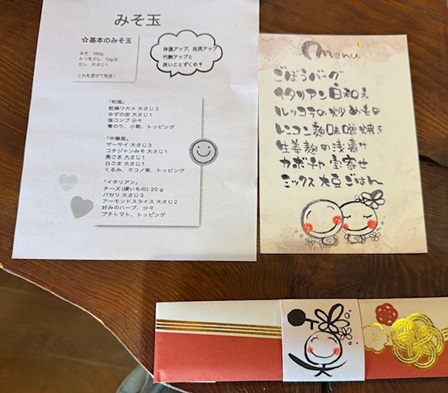 みそ玉
☆基本のみそ玉
みそ 160g
かつおぶし 10g位
だし 大さじ1
これを混ぜて完成!
体温アップ、免疫アップ
代謝アップと
良いことずくめ!!
「和風」
乾燥ワカメ 大さじ3
ゆずの皮 大さじ1
塩コンブ 少々
青のり、小葱、トッピング
「中華風」
ザーサイ 大さじ3
コチジャンみそ 大さじ1
黒ごま 大さじ1
白ごま 大さじ1
くるみ、クコノ実、トッピング
「イタリアン」
チーズ(硬いもの)20g
パセリ 大さじ3
アーモンドスライス 大さじ2
好みのハーブ、少々
プチトマト、トッピング
Menu
ごぼうバーグ
イタリアン日和え
ルッコラの炒めもの
レンコン麹味噌焼き
生姜麹の浅漬け
カボチャ寄せ
ミックス大豆ごはん